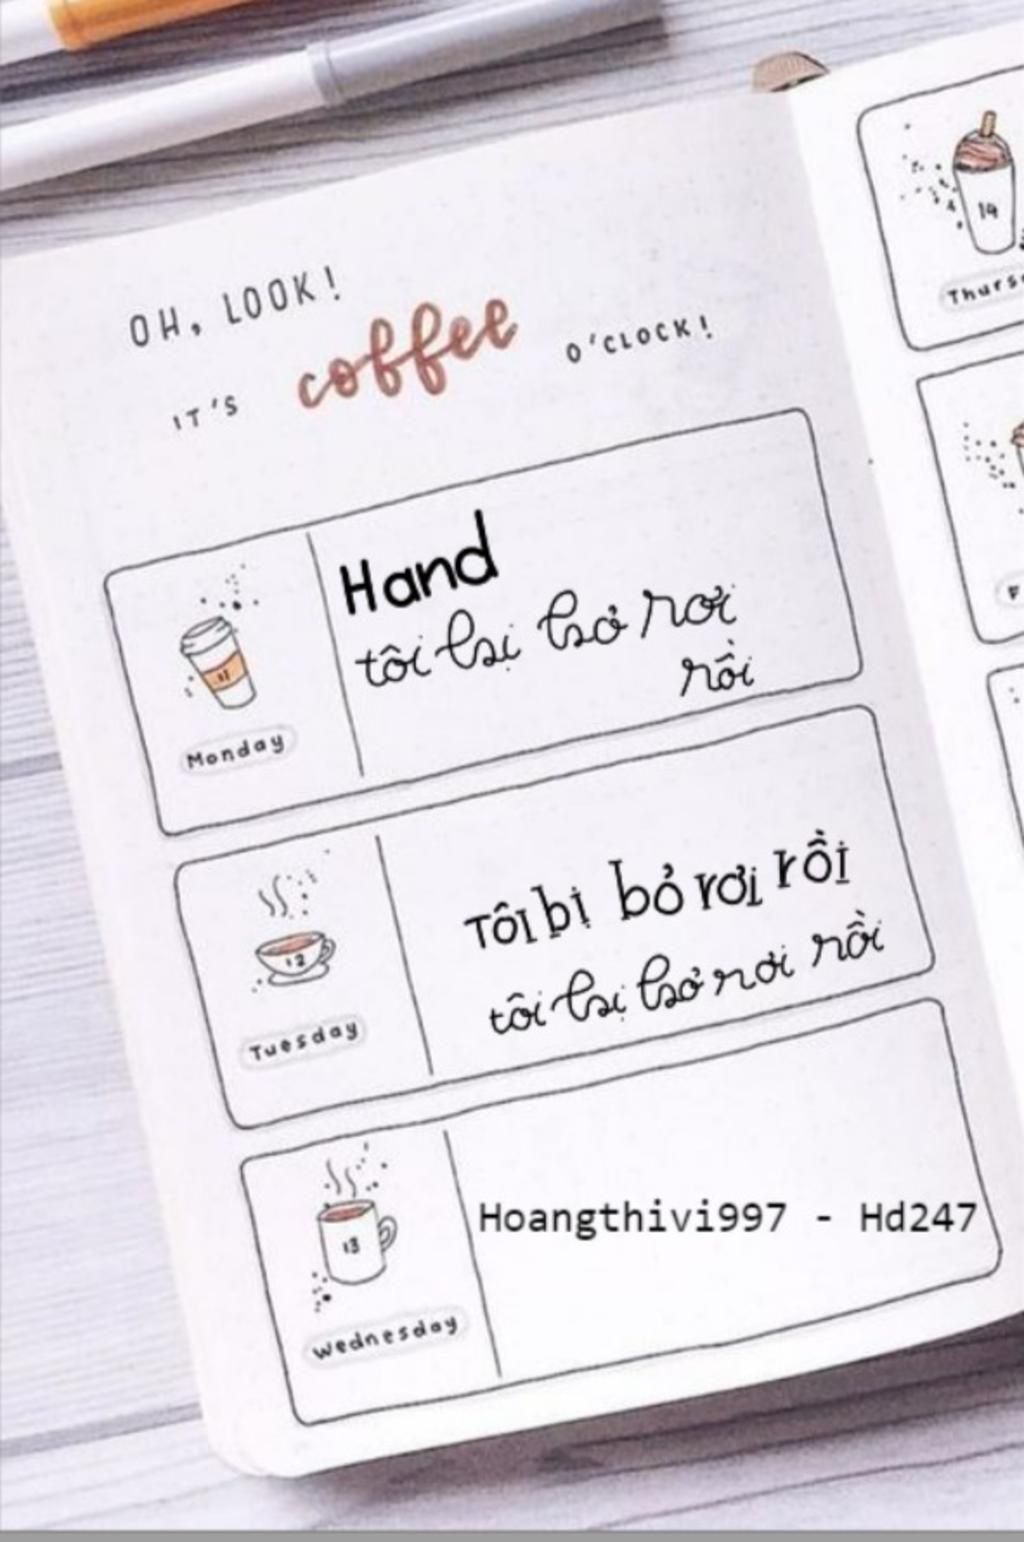 OH, LOOK!
IT'S coffee O'CLOCK!
11
Monday
Hand
tôi bị bỏ rơi
rồi
12
Tuesday
Tôi bị bỏ rơi rồi
tôi bị bỏ rơi rồi
13
Wednesday
Hoangthivi997 - Hd247
14